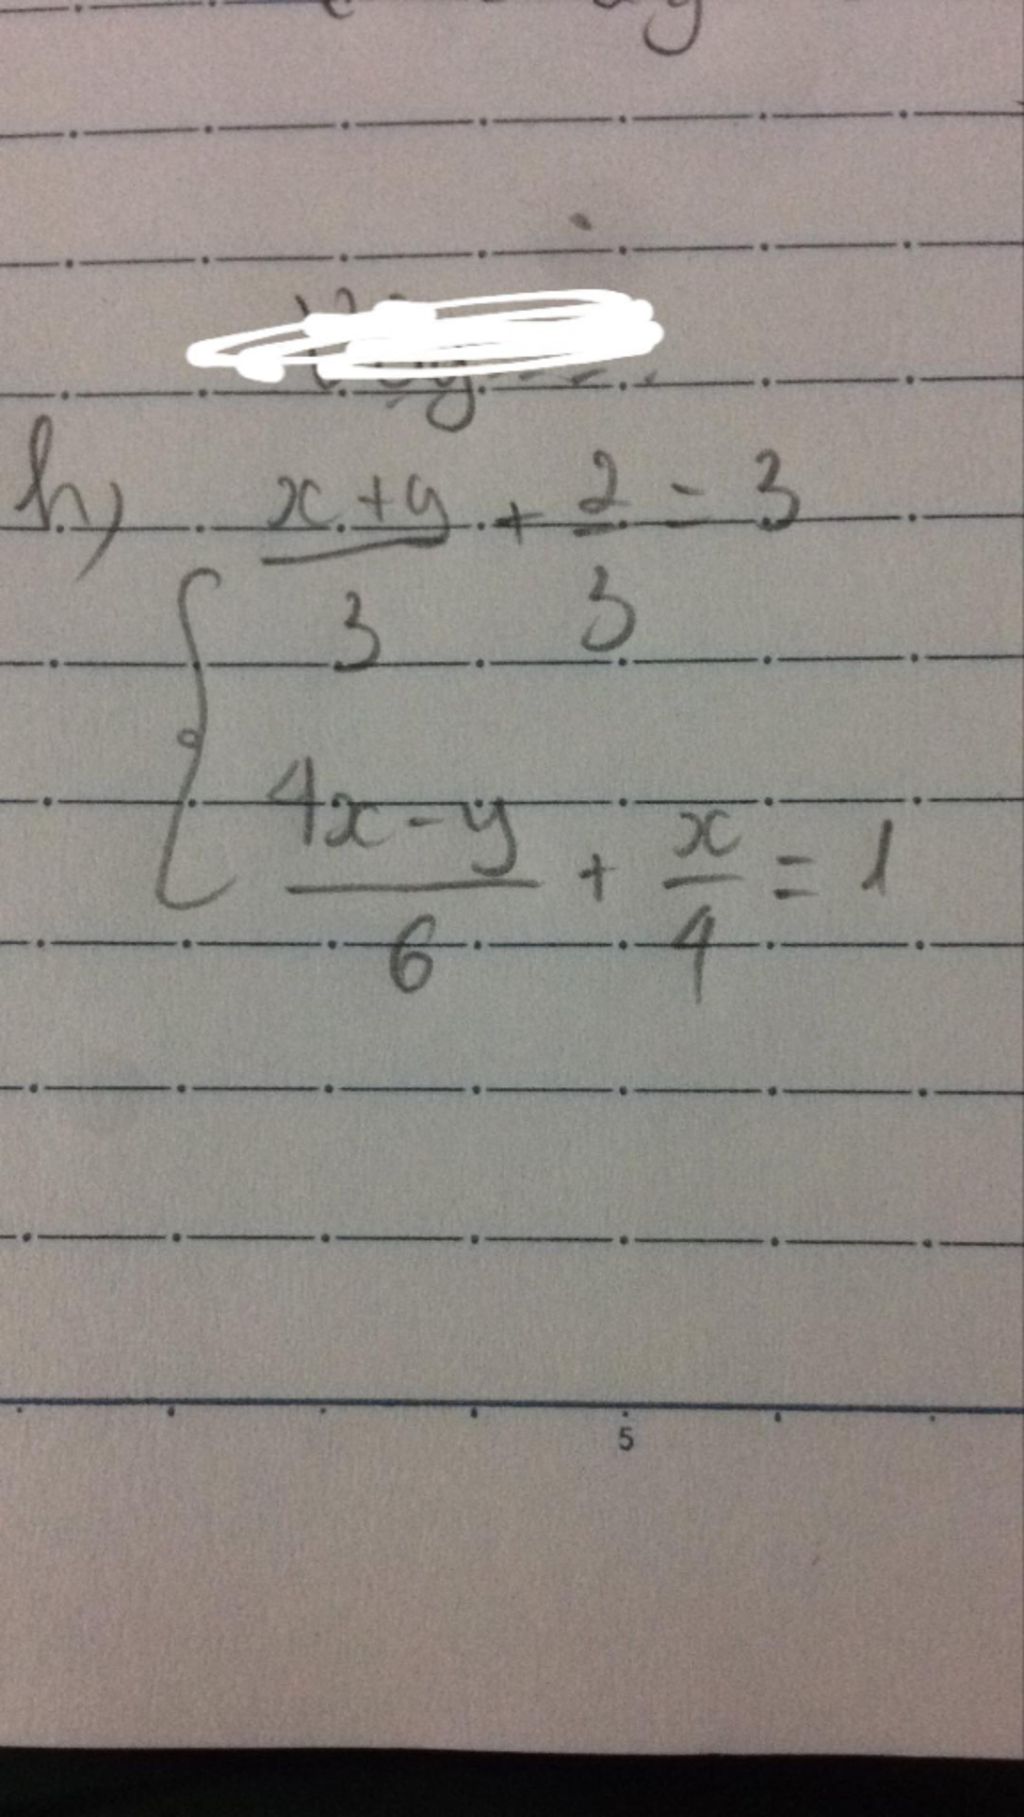 h) x + y / 3 + 2 / 3 = 3
4x - y / 6 + x / 4 = 1
5